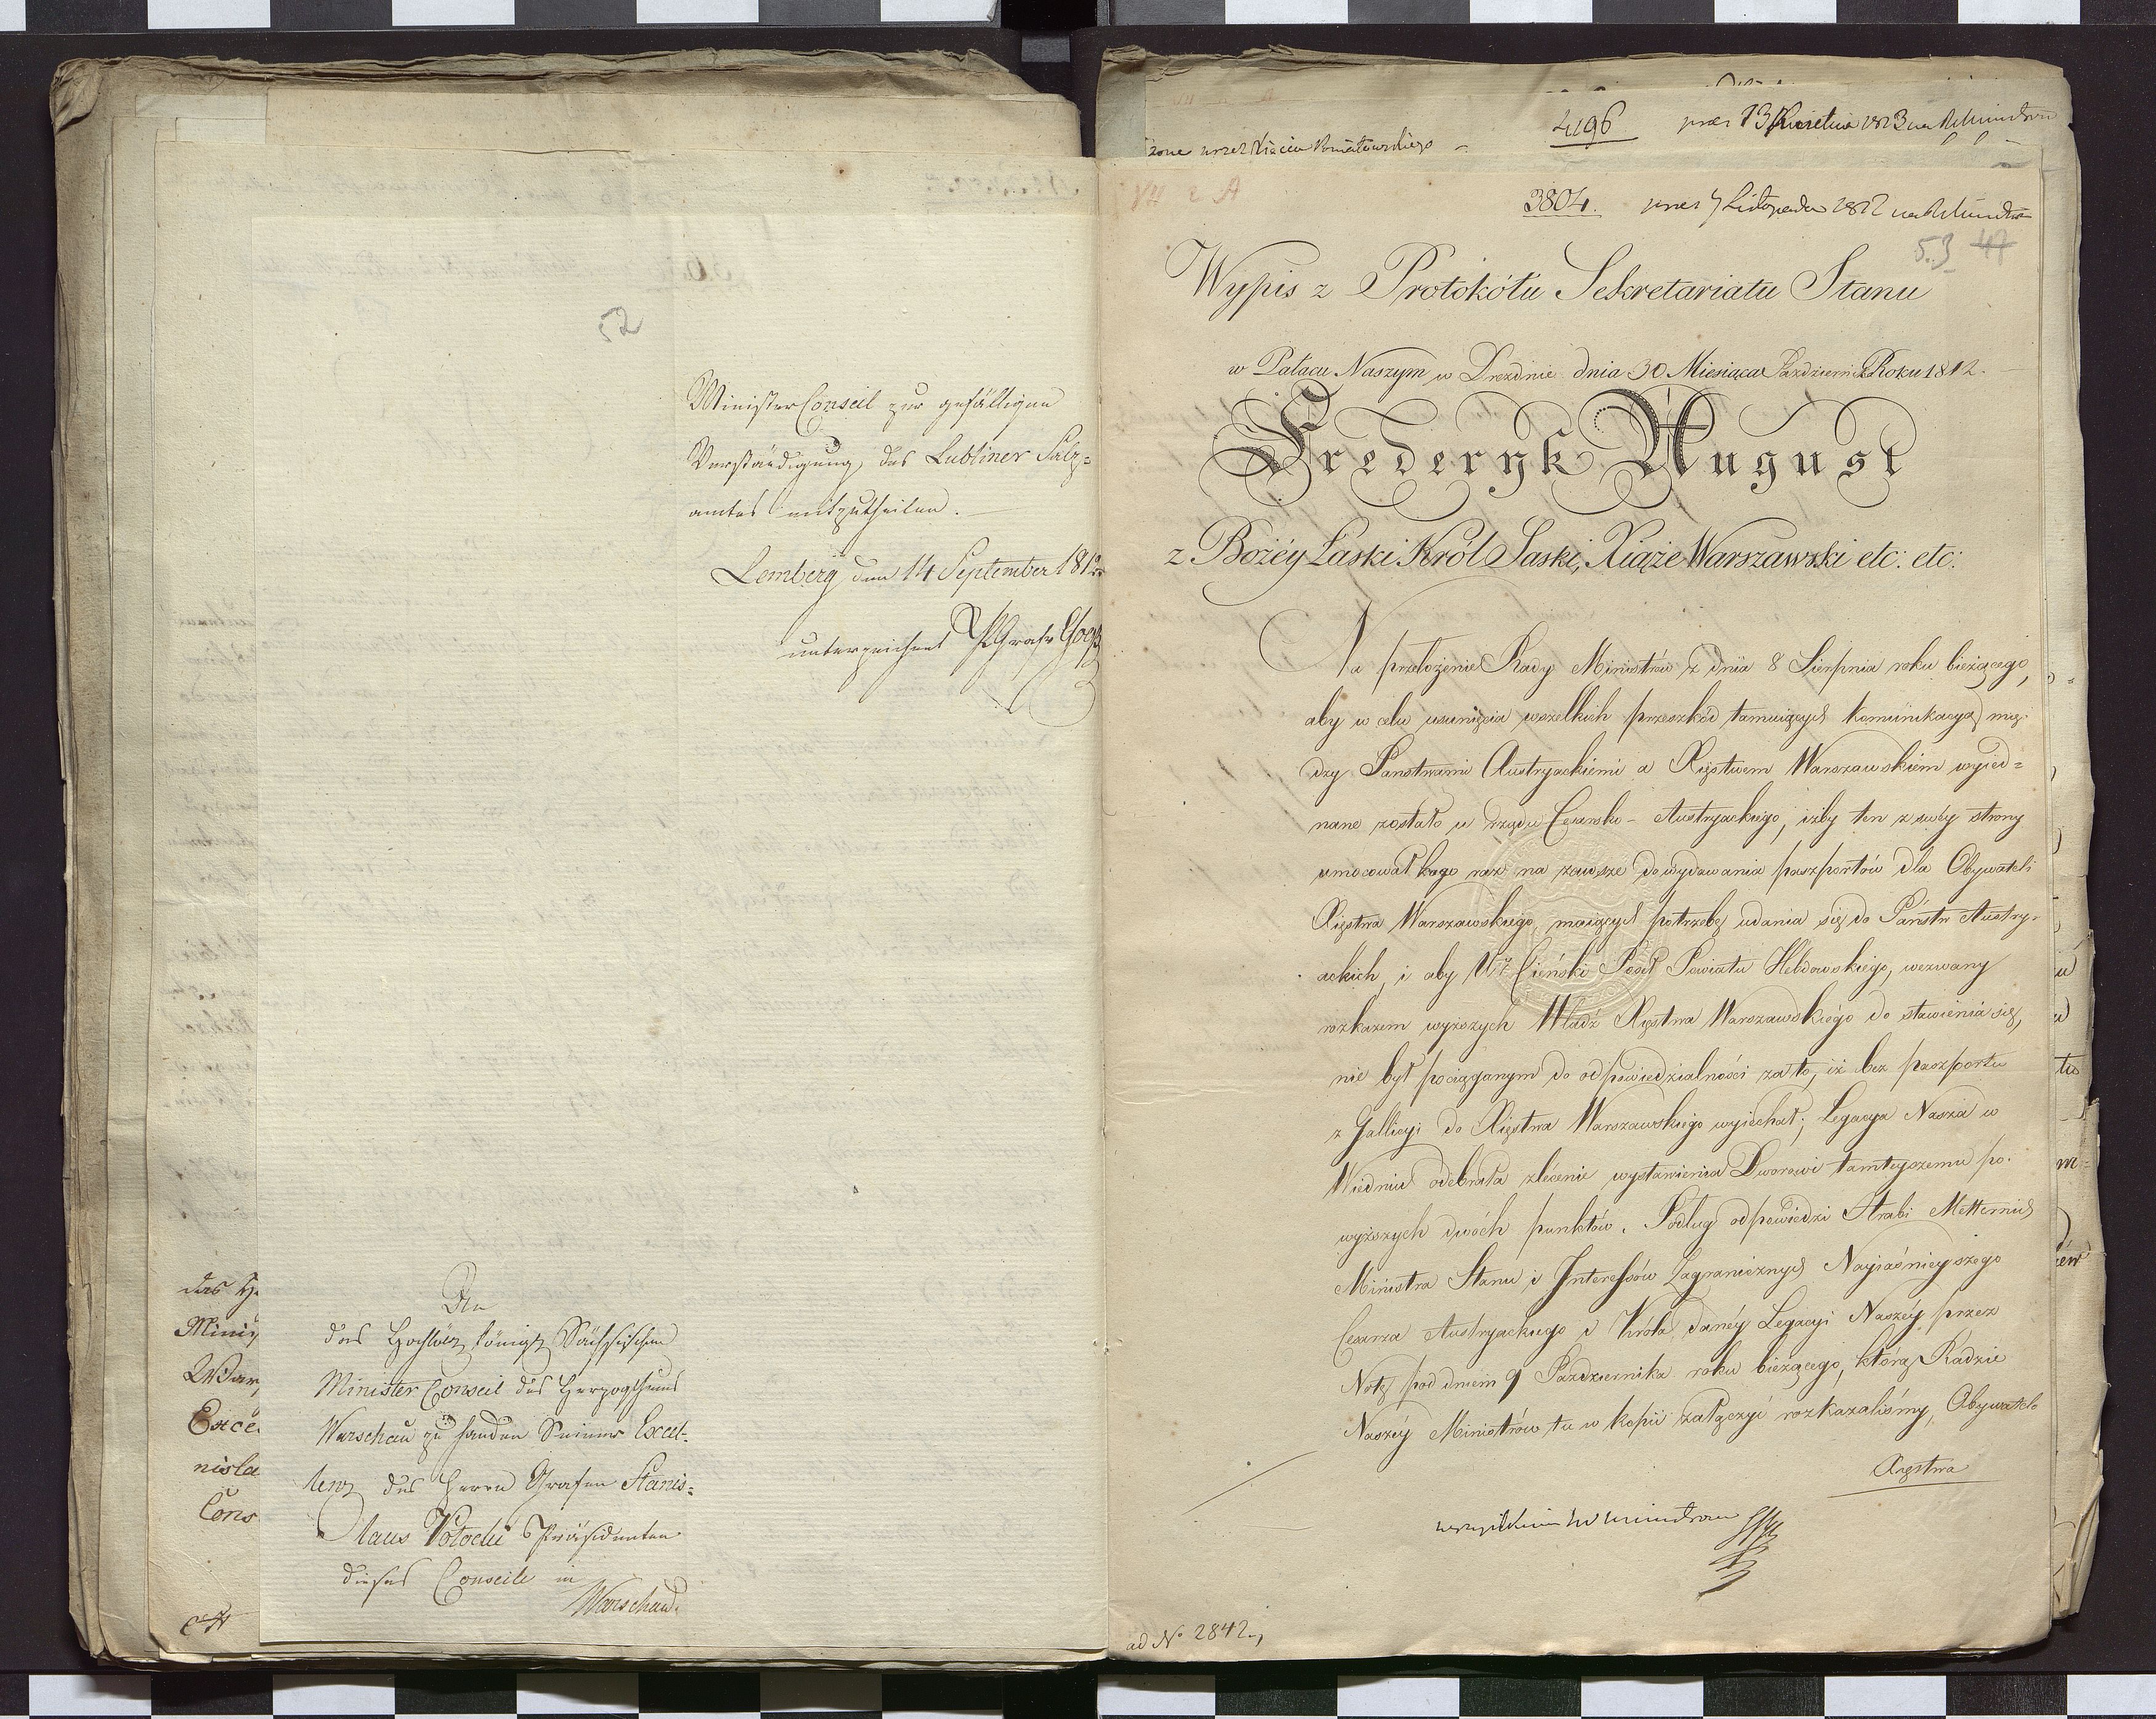 52
Minister Conseil zur gefälligen
Verständigung des Lubliner Salz=
amtes mitzutheilen.
Lemberg den 14 September 1812
unterzeichnet Graf Goeß
An
das Hochlöb. königl. Sächsischen
Minister Conseil des Herzogthums
Warschau zu Handen Seiner Excel-
lenz des Herrn Grafen Stanis=
laus Potocki Präsidenten
dieses Conseils in
Warschau.
das H
Minis
War
Exce
nisla
Cons
4196 prez 13 Kwietnia 1813
zone przez Xięcia Poniatowskiego
VII 2 A
3804. prez 7 Listopada 1812
53 47
Wypis z Protokółu Sekretariatu Stanu
w Pałacu Naszym w Dreźnie dnia 30 Miesiąca Październ. Roku 1812.
Frederyk August
z Bożéy Łaski Król Saski, Xiąże Warszawski etc: etc:
Na przełożenie Rady Ministrów z dnia 8 Sierpnia roku bieżącego,
aby w celu usunięcia wszelkich przeszkód tamuiących komunikacyą mię-
dzy Państwami Austryackiemi a Xięstwem Warszawskiem wyied=
nane zostało u Rządu Cesarsko-Austryackiego, iżby ten z swéy strony
umocował kogo raz na zawsze do wydawania paszportów dla Obywateli
Xięstwa Warszawskiego, maiących potrzebę udania się do Państw Austry-
ackich, i aby Ur Cieński Poseł Powiatu Hebdowskiego, wezwany
rozkazem wyższych Władz Xięstwa Warszawskiego do stawienia się,
nie był pociąganym do odpowiedzialności za to, iż bez paszportu
z Gallicyi do Xięstwa Warszawskiego wyiechał; Legacya Nasza w
Wiedniu odebrała zlecenie wystawienia Dworowi tamteyszemu po-
wyższych dwóch punktów. Podług odpowiedzi Hrabi Metternich
Ministra Stanu i Interessów Zagranicznych Nayiaśnieyszego
Cesarza Austryackiego i Króla, danéy Legacyi Naszéy przez
Notę pod dniem 9 Października roku bieżącego, którą Radzie
Naszéy Ministrów tu w kopii załączyć rozkazaliśmy, Obywatele
Xięstwa
ad No 2842.